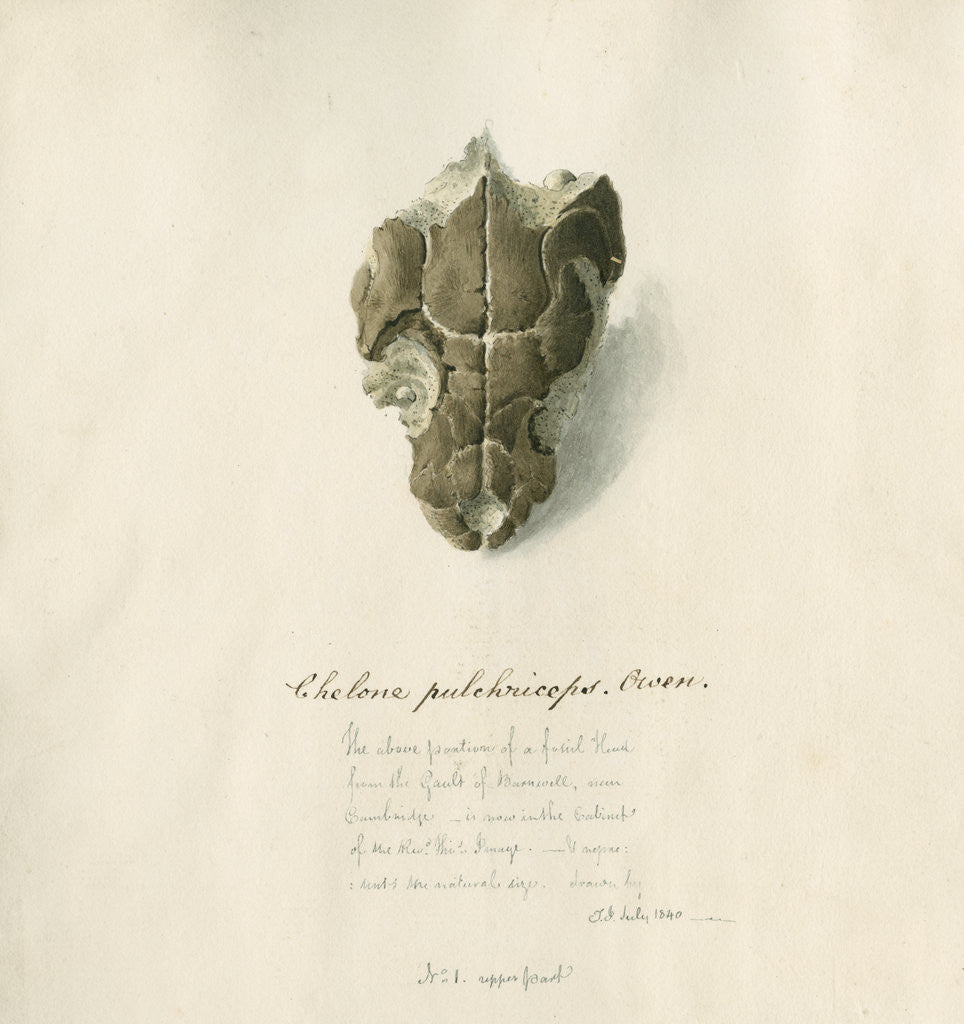 Chelone pulchriceps. Owen.
The above portion of a fossil Head
from the Gault of Barnwell, near
Cambridge – is now in the Cabinet
of the Revd. Thos. Image. — It repre:
: sents the natural size. drawn by
T.I. July 1840 ——
No 1. upper part